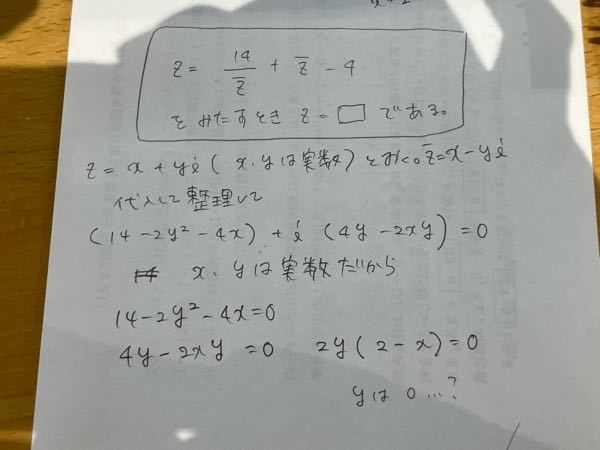 z = 14/z̄ + z̄ - 4
をみたすとき z = □ である。
z = x + yi ( x, yは実数) とおく。z̄ = x - yi
代入して整理して
(14 - 2y² - 4x) + i (4y - 2xy) = 0
x、yは実数だから
14 - 2y² - 4x = 0
4y - 2xy = 0 2y(2 - x) = 0
yは 0 …?